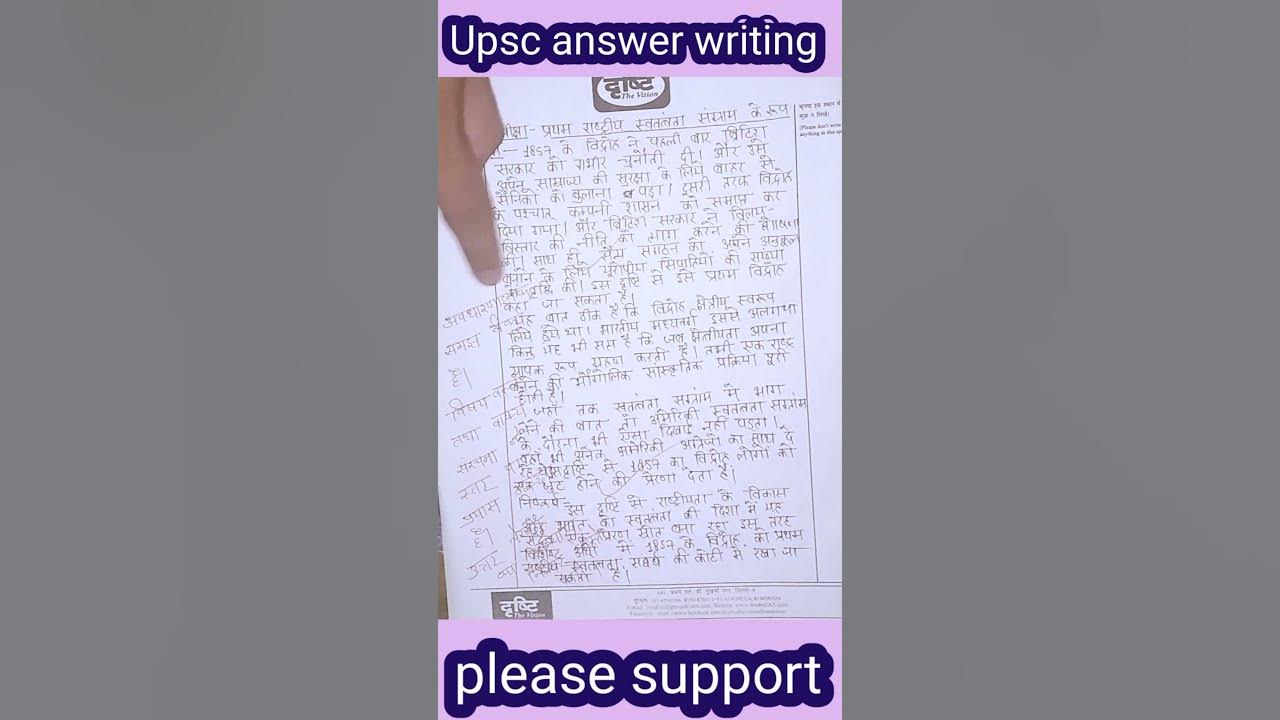 Upsc answer writing
दृष्टि
The Vision
समीक्षा- प्रथम राष्ट्रीय स्वतंत्रता संग्राम के रूप
में — 1857 के विद्रोह ने पहली बार ब्रिटिश
सरकार को गंभीर चुनौती दी। और उसे
अपने साम्राज्य की सुरक्षा के लिये बाहर से
सैनिकों को बुलाना पड़ा। दूसरी तरफ विद्रोह
के पश्चात् कम्पनी शासन को समाप्त कर
दिया गया। और ब्रिटिश सरकार ने विलय-
विस्तार की नीति को त्याग करने की घोषणा
की। साथ ही सैन्य संगठन को अपने अनुकूल
बनाने के लिये यूरोपीय सिपाहियों की संख्या
में वृद्धि की। इस दृष्टि से इसे प्रथम विद्रोह
कहा जा सकता है।
यह बात ठीक है कि विद्रोह क्षेत्रीय स्वरूप
लिये हुये था। भारतीय मध्यवर्ग इससे अलग था
किन्तु यह भी सत्य है कि जब क्षेत्रीयता अपना
व्यापक रूप ग्रहण करती है। तभी एक राष्ट्र
बनने की भौगोलिक सांस्कृतिक प्रक्रिया पूरी
होती है।
जहाँ तक स्वतंत्रता संग्राम में भाग
लेने की बात तो अमेरिकी स्वतंत्रता संग्राम
के दौरान भी ऐसा दिखाई नहीं पड़ता।
वहां भी अनेक अमेरिकी अंग्रेजों का साथ दे
रहे थे। इस दृष्टि से 1857 का विद्रोह लोगों को
एक जुट होने की प्रेरणा देता है।
निष्कर्ष- इस दृष्टि से राष्ट्रीयता के विकास
और भारत की स्वतंत्रता की दिशा में यह
सदैव एक प्रेरणा स्रोत बना रहा इस तरह
विशिष्ट अर्थों में 1857 के विद्रोह को प्रथम
राष्ट्रीय स्वतंत्रता संघर्ष की कोटि में रखा जा
सकता है।
अवधारणात्मक
समझ
है।
विषय वस्तु
तथा वाक्य
संरचना
स्तर
प्रयास
है।
उत्तर
कृपया इस स्थान में
कुछ न लिखें।
(Please don't write
anything in this
दृष्टि
The Vision
please support